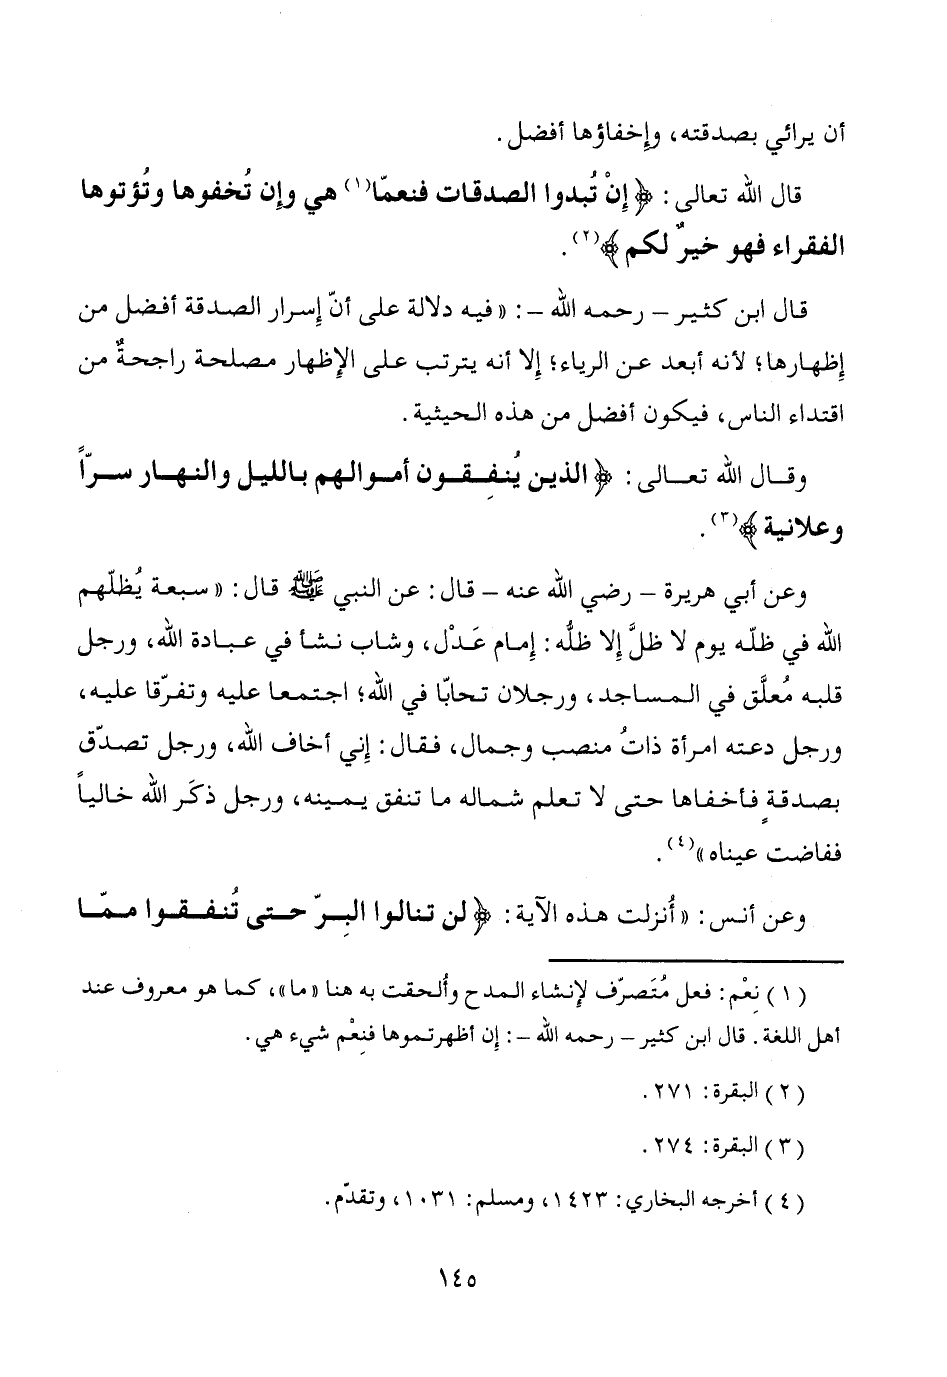 أن يرائي بصدقته، وإخفاؤها أفضل.
قال الله تعالى: ﴿إنْ تُبدوا الصدقات فنعمّا(١) هي وإن تُخفوها وتُؤتوها
الفقراء فهو خيرٌ لكم﴾(٢).
قال ابن كثير – رحمه الله –: «فيه دلالة على أنّ إسرار الصدقة أفضل من
إظهارها؛ لأنه أبعد عن الرياء؛ إلا أنه يترتب على الإظهار مصلحة راجحةٌ من
اقتداء الناس، فيكون أفضل من هذه الحيثية.
وقال الله تعالى: ﴿الذين يُنفِقون أموالهم بالليل والنهار سرّاً
وعلانية﴾(٣).
وعن أبي هريرة – رضي الله عنه – قال: عن النبي ﷺ قال: «سبعة يُظلّهم
الله في ظلّه يوم لا ظلَّ إلا ظلُّه: إمام عَدْل، وشاب نشأ في عبادة الله، ورجل
قلبه مُعلَّق في المساجد، ورجلان تحابّا في الله؛ اجتمعا عليه وتفرّقا عليه،
ورجل دعته امرأة ذاتُ منصب وجمال، فقال: إني أخاف الله، ورجل تصدّق
بصدقةٍ فأخفاها حتى لا تعلم شماله ما تنفق يمينه، ورجل ذكَر الله خالياً
ففاضت عيناه»(٤).
وعن أنس: «أُنزلت هذه الآية: ﴿لن تنالوا البِرّ حتى تُنفقوا ممّا
(١) نِعْم: فعل مُتَصرّف لإنشاء المدح وأُلحقت به هنا «ما»، كما هو معروف عند
أهل اللغة. قال ابن كثير – رحمه الله –: إن أظهرتموها فنِعْم شيء هي.
(٢) البقرة: ٢٧١.
(٣) البقرة: ٢٧٤.
(٤) أخرجه البخاري: ١٤٢٣، ومسلم: ١٠٣١، وتقدّم.
١٤٥